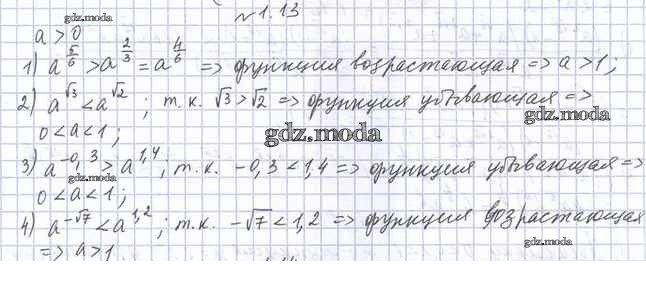 № 1.13
gdz.moda
a > 0
1) a^(5/6) > a^(2/3) = a^(4/6) => функция возрастающая => a > 1 ;
2) a^√3 < a^√2 ; т.к. √3 > √2 => функция убывающая =>
gdz.moda
0 < a < 1 ;
gdz.moda
3) a^(-0,3) > a^(1,4) ; т.к. -0,3 < 1,4 => функция убывающая =>
0 < a < 1 ;
gdz.moda
4) a^(-√7) < a^(1,2) ; т.к. -√7 < 1,2 => функция возрастающая
gdz.moda
=> a > 1